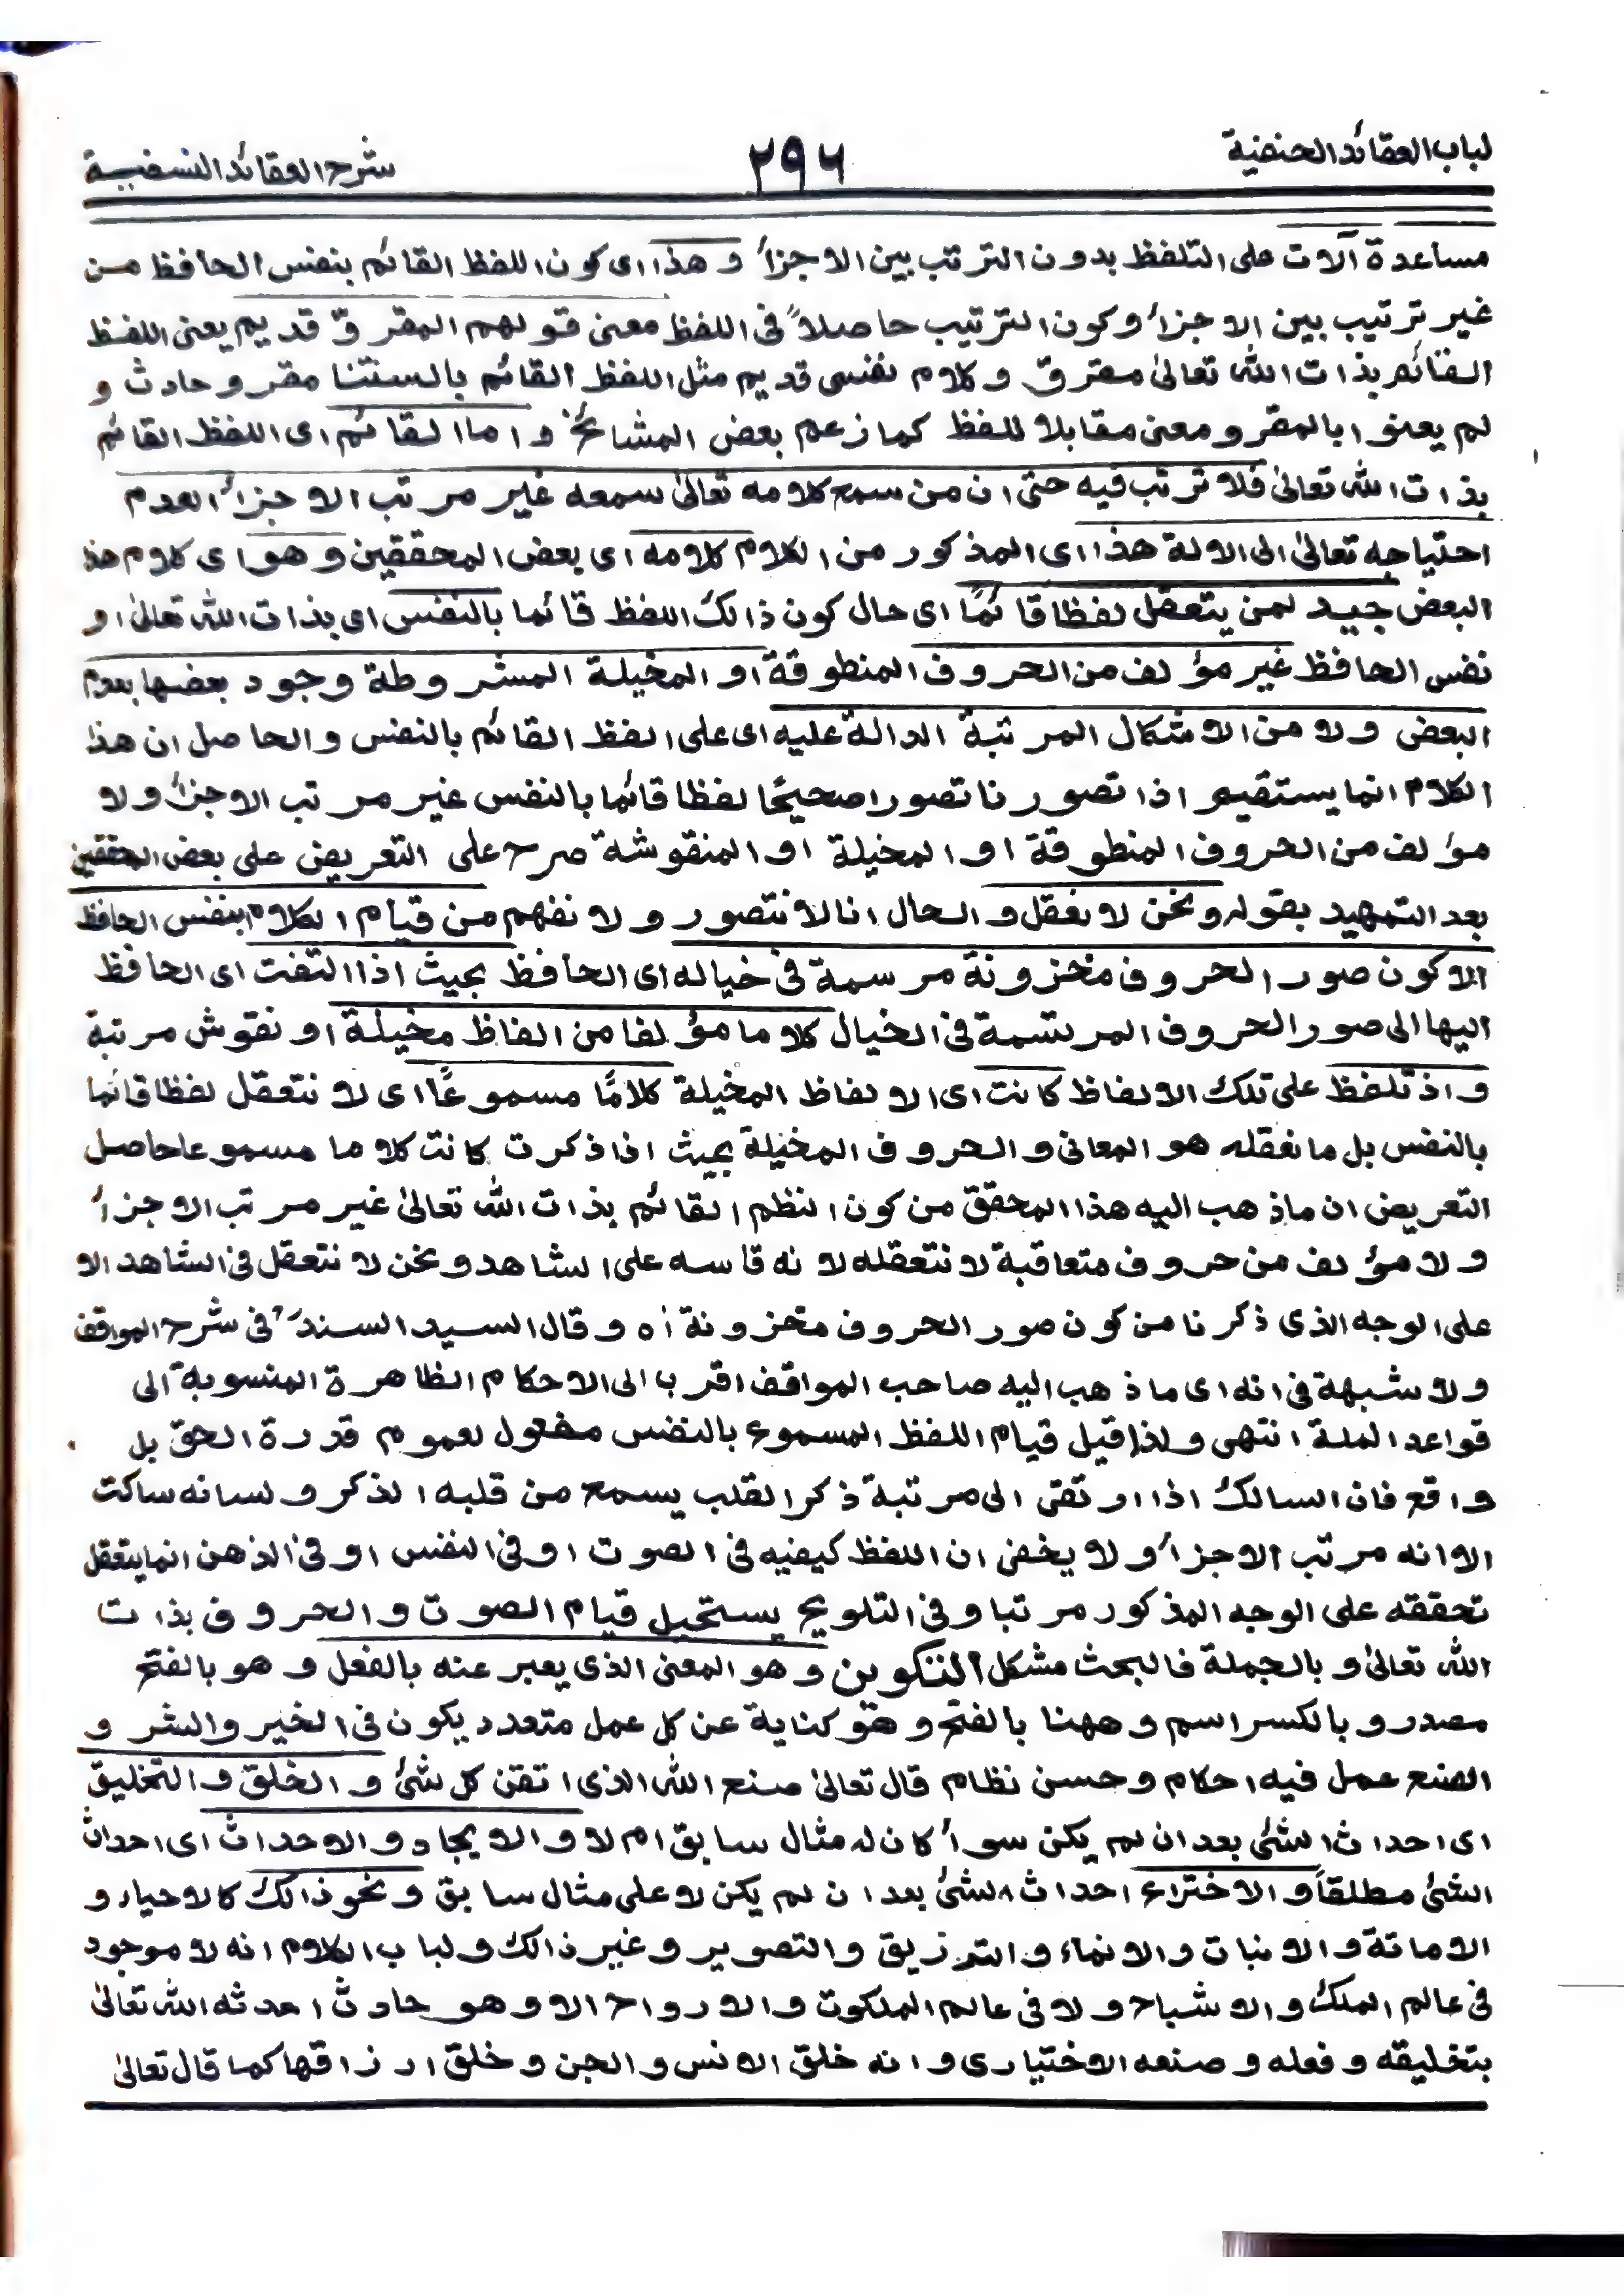 لباب العقائد الحنفية
٢٩٦
شرح العقائد النسفية
مساعدة آلات على التلفظ بدون الترتب بين الاجزأ وهذا اى كون اللفظ القائم بنفس الحافظ من
غير ترتيب بين الاجزأ وكون الترتيب حاصلاً فى اللفظ معنى قولهم المقروّ قديم يعنى اللفظ
القائم بذات الله تعالىٰ مقروّ وكلام نفسى قديم مثل اللفظ القائم بالسنتنا مقرو حادث و
لم يعنوا بالمقرو معنى مقابلا للفظ كما زعم بعض المشائخ واما القائم اى اللفظ القائم
بذات الله تعالىٰ فلا ترتب فيه حتى ان من سمع كلامه تعالىٰ سمعه غير مرتب الاجزأ لعدم
احتياجه تعالىٰ الى الالة هذا اى المذكور من الكلام كلامه اى بعض المحققين وهو اى كلام هذا
البعض جيد لمن يتعقل لفظا قائمًا اى حال كون ذالك اللفظ قائما بالنفس اى بذات الله تعالىٰ او
نفس الحافظ غير مؤلف من الحروف المنطوقة او المخيلة المشروطة وجود بعضها بعدم
البعض ولا من الاشكال المرتبة الدالة عليه اى على اللفظ القائم بالنفس والحاصل ان هذا
الكلام انما يستقيم اذا تصورنا تصورا صحيحًا لفظا قائما بالنفس غير مرتب الاجزأ ولا
مؤلف من الحروف المنطوقة او المخيلة او المنقوشة صرح على التعريض على بعض المحققين
بعد التمهيد بقوله ونحن لا نعقل والحال انا لا نتصور ولا نفهم من قيام الكلام بنفس الحافظ
الا كون صور الحروف مخزونة مرسمة فى خياله اى الحافظ بحيث اذا التفت اى الحافظ
اليها الى صور الحروف المرتسمة فى الخيال كلاما مؤلفا من الفاظ مخيلة او نقوش مرتبة
واذ تلفظ على تلك الالفاظ كانت اى الالفاظ المخيلة كلامًا مسموعًا اى لا نتعقل لفظا قائما
بالنفس بل ما نعقله هو المعانى والحروف المخيلة بحيث اذا ذكرت كانت كلاما مسموعا حاصل
التعريض ان ماذهب اليه هذا المحقق من كون النظم القائم بذات الله تعالىٰ غير مرتب الاجزأ
ولا مؤلف من حروف متعاقبة لا نتعقله لانه قاسه على الشاهد ونحن لا نتعقل فى الشاهد الا
على الوجه الذى ذكرنا من كون صور الحروف مخزونة اه وقال السيد السند فى شرح المواقف
ولا شبهة فى انه اى ما ذهب اليه صاحب المواقف اقرب الى الاحكام الظاهرة المنسوبة الى
قواعد الملة انتهى ولذا قيل قيام اللفظ المسموع بالنفس مفعول لعموم قدرة الحق بل
واقع فان السالك اذا ارتقى الى مرتبة ذكر القلب يسمع من قلبه الذكر ولسانه ساكت
الا انه مرتب الاجزأ ولا يخفى ان اللفظ كيفيه فى الصوت او فى النفس او فى الذهن انما يتعقل
تحققه على الوجه المذكور مرتبا وفى التلويح يستحيل قيام الصوت والحروف بذات
الله تعالىٰ وبالجملة فالبحث مشكل التكوين وهو المعنى الذى يعبر عنه بالفعل وهو بالفتح
مصدر وبالكسر اسم وههنا بالفتح وهو كناية عن كل عمل متعدد يكون فى الخير والشر و
الصنع عمل فيه احكام وحسن نظام قال تعالىٰ صنع الله الذى اتقن كل شئ والخلق والتخليق
اى احداث الشئى بعد ان لم يكن سوأ كان له مثال سابق ام لا والايجاد والاحداث اى احداث
الشئ مطلقاً والاختراع احداث الشئ بعد ان لم يكن لا على مثال سابق ونحو ذالك كالاحياء و
الاماتة والانبات والانماء والترزيق والتصوير وغير ذالك ولباب الكلام انه لا موجود
فى عالم الملك والاشباح ولا فى عالم الملكوت والارواح الا وهو حادث احدثه الله تعالىٰ
بتخليقه وفعله وصنعه الاختيارى وانه خلق الانس والجن وخلق ارزاقها كما قال تعالىٰ